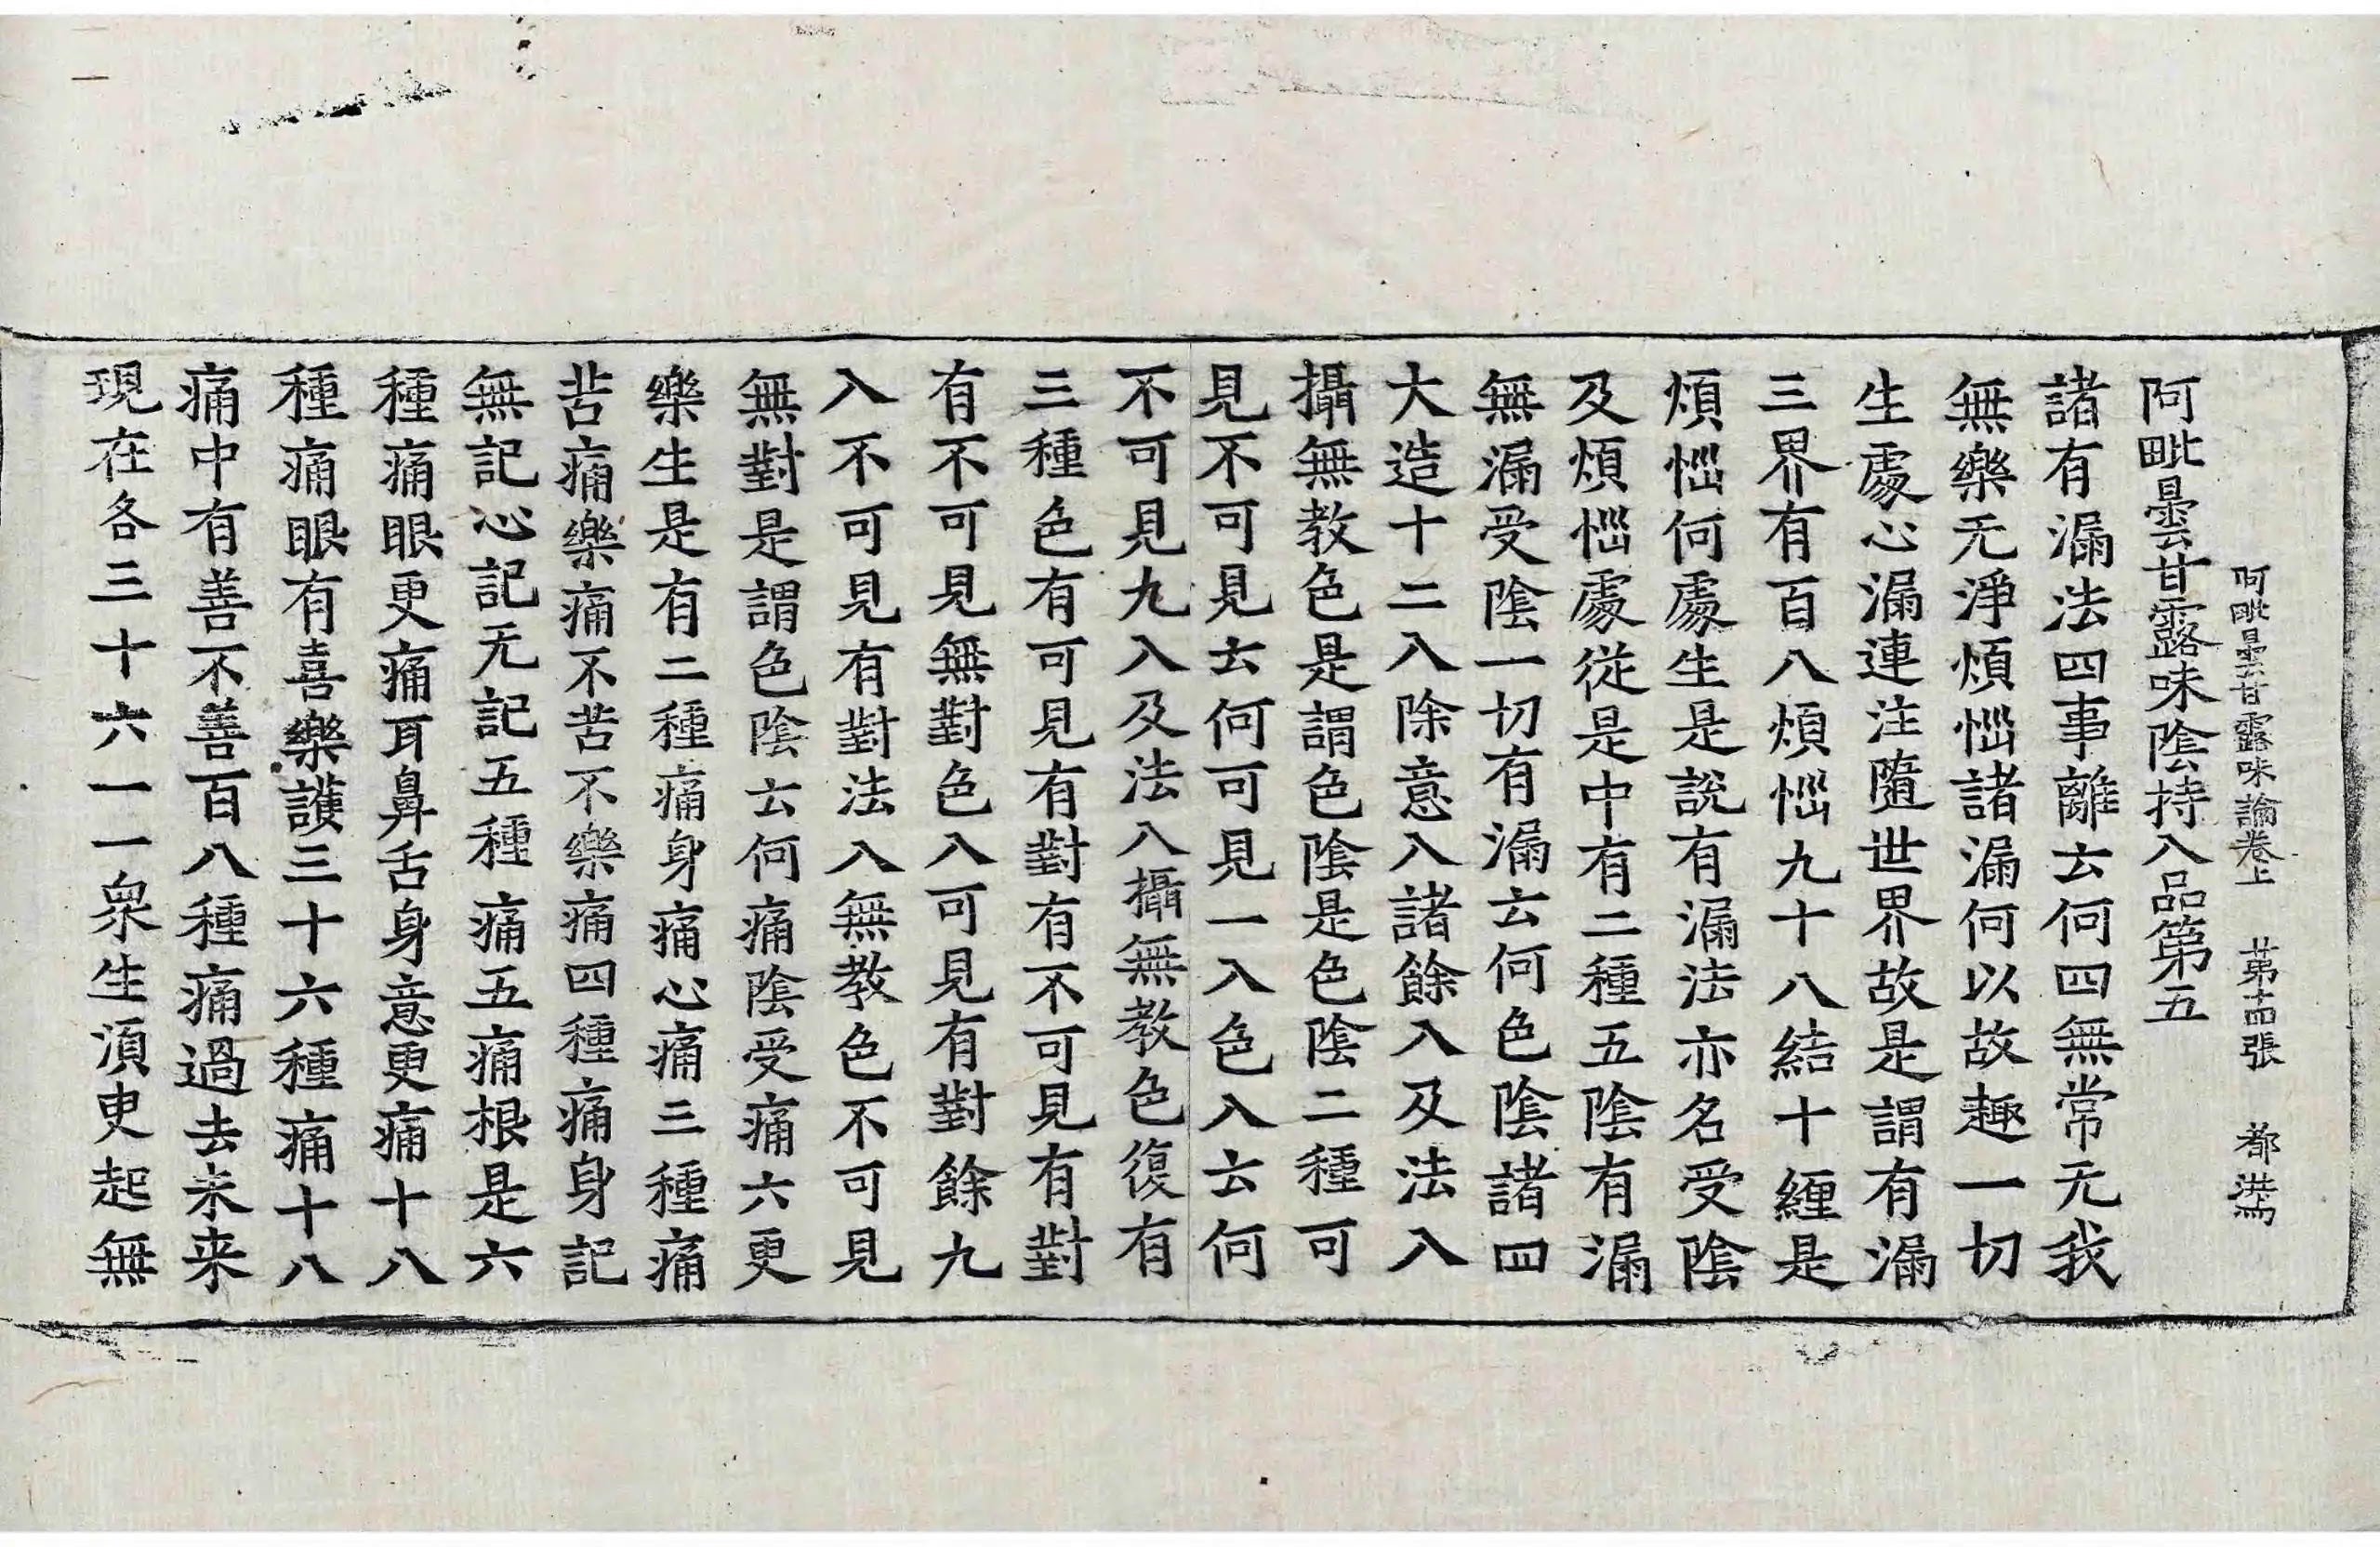 阿毗曇甘露味論卷上 苐十四張 都
阿毗曇甘露味陰持入品第五
諸有漏法四事離云何四無常无我
無樂无淨煩惱諸漏何以故趣一切
生處心漏連注隨世界故是謂有漏
三界有百八煩惱九十八結十纏是
煩惱何處生是說有漏法亦名受陰
及煩惱處從是中有二種五陰有漏
無漏受陰一切有漏云何色陰諸四
大造十二入除意入諸餘入及法入
攝無教色是謂色陰是色陰二種可
見不可見云何可見一入色入云何
不可見九入及法入攝無教色復有
三種色有可見有對有不可見有對
有不可見無對色入可見有對餘九
入不可見有對法入無教色不可見
無對是謂色陰云何痛陰受痛六更
樂生是有二種痛身痛心痛三種痛
苦痛樂痛不苦不樂痛四種痛身記
無記心記无記五種痛五痛根是六
種痛眼更痛耳鼻舌身意更痛十八
種痛眼有喜樂護三十六種痛十八
痛中有善不善百八種痛過去未来
現在各三十六一一衆生湏臾起無